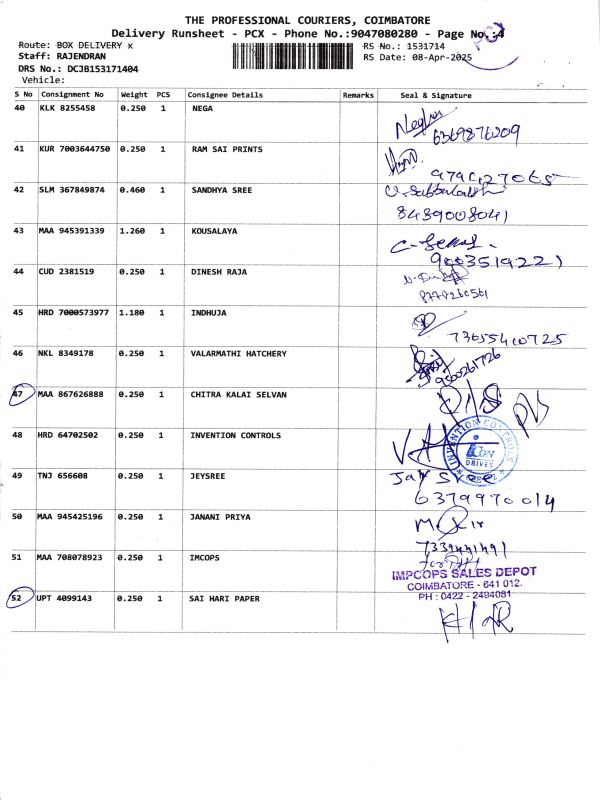 THE PROFESSIONAL COURIERS, COIMBATORE
Delivery Runsheet - PCX - Phone No.:9047080280 - Page No.:4
Route: BOX DELIVERY x
RS No.: 1531714
Staff: RAJENDRAN
RS Date: 08-Apr-2025
DRS No.: DCJB153171404
Vehicle:
S No Consignment No Weight PCS Consignee Details Remarks Seal & Signature
40 KLK 8255458 0.250 1 NEGA
6369876209
41 KUR 7003644750 0.250 1 RAM SAI PRINTS
42 SLM 367849874 0.460 1 SANDHYA SREE
8439008041
43 MAA 945391339 1.260 1 KOUSALAYA
9003519221
44 CUD 2381519 0.250 1 DINESH RAJA
45 HRD 7000573977 1.180 1 INDHUJA
46 NKL 8349178 0.250 1 VALARMATHI HATCHERY
9500261726
47 MAA 867626888 0.250 1 CHITRA KALAI SELVAN
48 HRD 64702502 0.250 1 INVENTION CONTROLS
INVENTION CONTROLS
ICON
DRIVES
49 TNJ 656608 0.250 1 JEYSREE
Jay Sree
6379970014
50 MAA 945425196 0.250 1 JANANI PRIYA
7339441491
51 MAA 708078923 0.250 1 IMCOPS
IMPCOPS SALES DEPOT
COIMBATORE - 641 012.
PH : 0422 - 2494081
52 UPT 4099143 0.250 1 SAI HARI PAPER